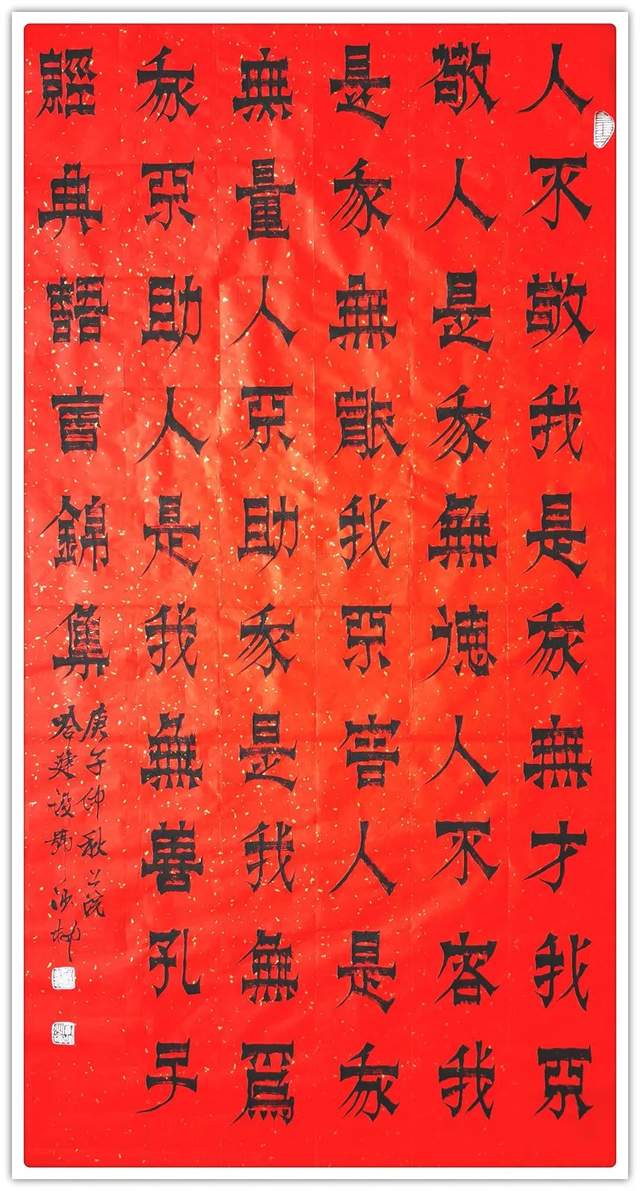 人不敬我是我無才我不
敬人是我無德人不容我
是我無能我不容人是我
無量人不助我是我無爲
我不助人是我無善孔子
經典語言錦集
庚子仲秋
哈建設